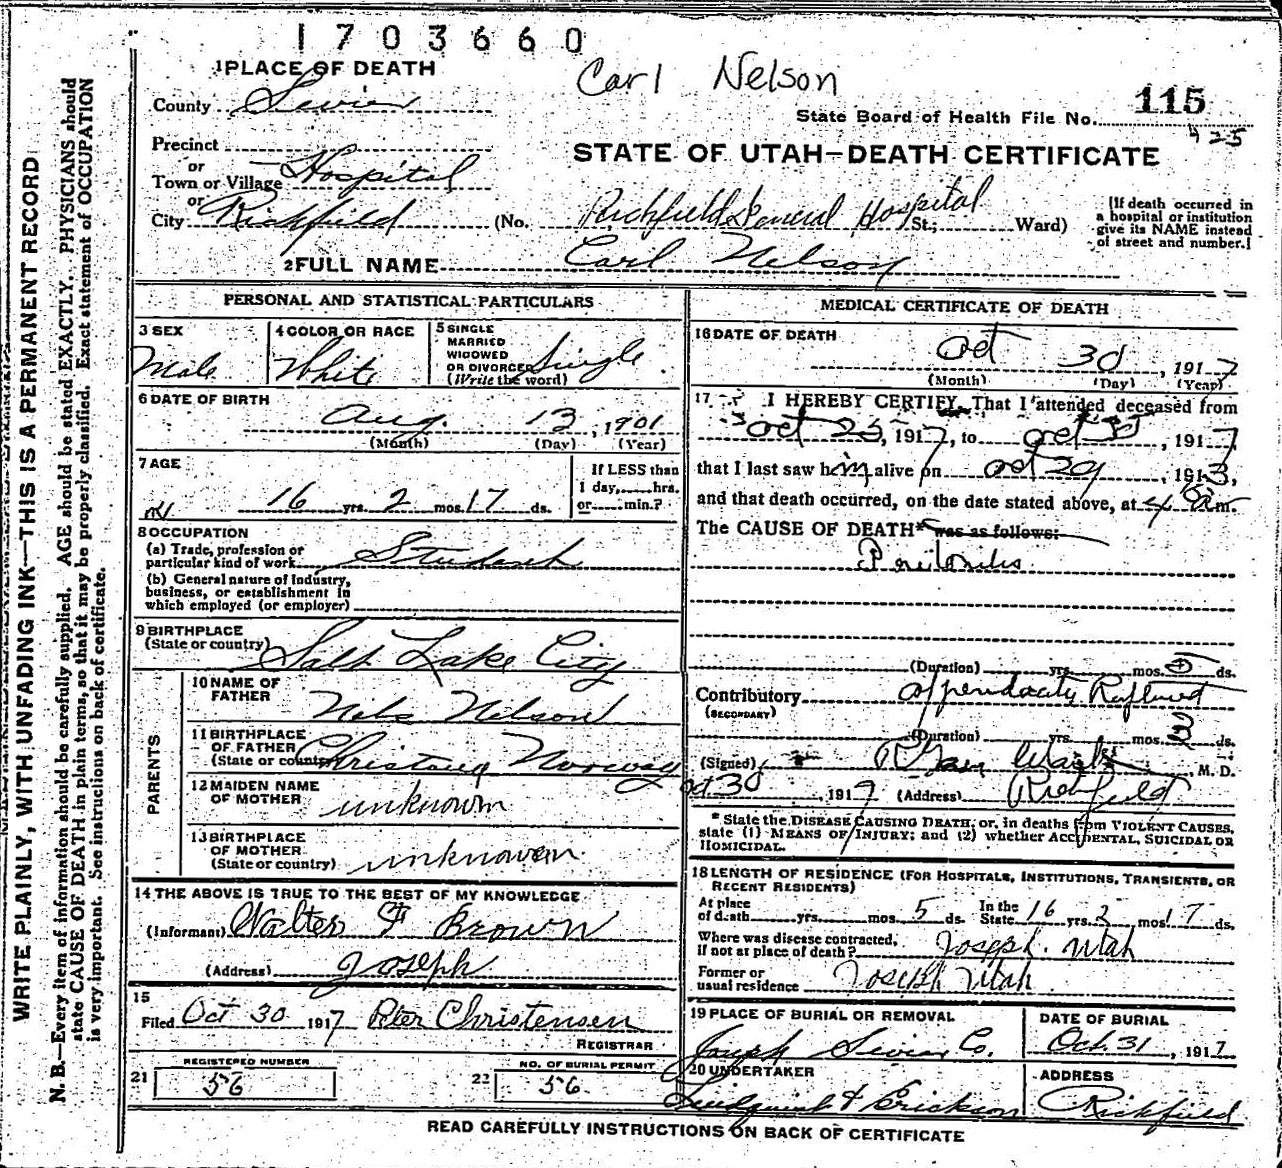 1703660
Carl Nelson
1 PLACE OF DEATH
County Sevier
115
State Board of Health File No. 425
Precinct
or
Town or Village Hospital
or
City Richfield
STATE OF UTAH—DEATH CERTIFICATE
(No. Richfield General Hospital St.; Ward)
(If death occurred in
a hospital or institution
give its NAME instead
of street and number.)
2 FULL NAME Carl Nelson
PERSONAL AND STATISTICAL PARTICULARS
3 SEX
Male
4 COLOR OR RACE
White
5 SINGLE
MARRIED
WIDOWED
OR DIVORCED Single
(Write the word)
6 DATE OF BIRTH
Aug. 13, 1901
(Month) (Day) (Year)
7 AGE
16 yrs. 2 mos. 17 ds.
If LESS than
1 day, hrs.
or min.?
8 OCCUPATION
(a) Trade, profession or
particular kind of work Student
(b) General nature of Industry,
business, or establishment in
which employed (or employer)
9 BIRTHPLACE
(State or country) Salt Lake City
PARENTS
10 NAME OF
FATHER Nels Nelson
11 BIRTHPLACE
OF FATHER
(State or country) Norway
12 MAIDEN NAME
OF MOTHER unknown
13 BIRTHPLACE
OF MOTHER
(State or country) unknown
14 THE ABOVE IS TRUE TO THE BEST OF MY KNOWLEDGE
(Informant) Walter F Brown
(Address) Joseph
15
Filed Oct 30 1917 Peter Christensen
REGISTRAR
REGISTERED NUMBER
21 56
NO. OF BURIAL PERMIT
22 56
MEDICAL CERTIFICATE OF DEATH
16 DATE OF DEATH
Oct 30, 1917
(Month) (Day) (Year)
17 I HEREBY CERTIFY, That I attended deceased from
Oct 25, 1917, to Oct 30, 1917
that I last saw him alive on Oct 29, 1913,
and that death occurred, on the date stated above, at 4 m.
The CAUSE OF DEATH* was as follows:
Peritonitis
(Duration) yrs. mos. ds.
Contributory
(SECONDARY)
(Duration) yrs. mos. ds.
(Signed) Clark, M. D.
Oct 30, 1917 (Address) Richfield
* State the DISEASE CAUSING DEATH, or, in deaths from VIOLENT CAUSES,
state (1) MEANS OF INJURY; and (2) whether ACCIDENTAL, SUICIDAL OR
HOMICIDAL.
18 LENGTH OF RESIDENCE (FOR HOSPITALS, INSTITUTIONS, TRANSIENTS, OR
RECENT RESIDENTS)
At place
of death yrs. mos. 5 ds. In the State 16 yrs. 2 mos. 17 ds.
Where was disease contracted,
if not at place of death? Joseph. Utah
Former or
usual residence Joseph Utah
19 PLACE OF BURIAL OR REMOVAL
Joseph Sevier Co.
DATE OF BURIAL
Oct. 31, 1917
20 UNDERTAKER
Lindquist & Erickson
ADDRESS
Richfield
READ CAREFULLY INSTRUCTIONS ON BACK OF CERTIFICATE
WRITE PLAINLY, WITH UNFADING INK—THIS IS A PERMANENT RECORD
N. B.—Every item of information should be carefully supplied. AGE should be stated EXACTLY. PHYSICIANS should
state CAUSE OF DEATH in plain terms, so that it may be properly classified. Exact statement of OCCUPATION
is very important. See instructions on back of certificate.